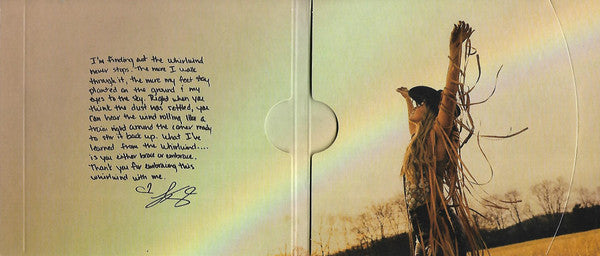 I'm finding out the whirlwind
never stops. The more I walk
through it, the more my feet stay
planted on the ground & my
eyes to the sky. Right when you
think the dust has settled, you
can hear the wind rolling like a
train right around the corner ready
to stir it back up. What I've
learned from the whirlwind....
is you either brace or embrace.
Thank you for embracing this
whirlwind with me.